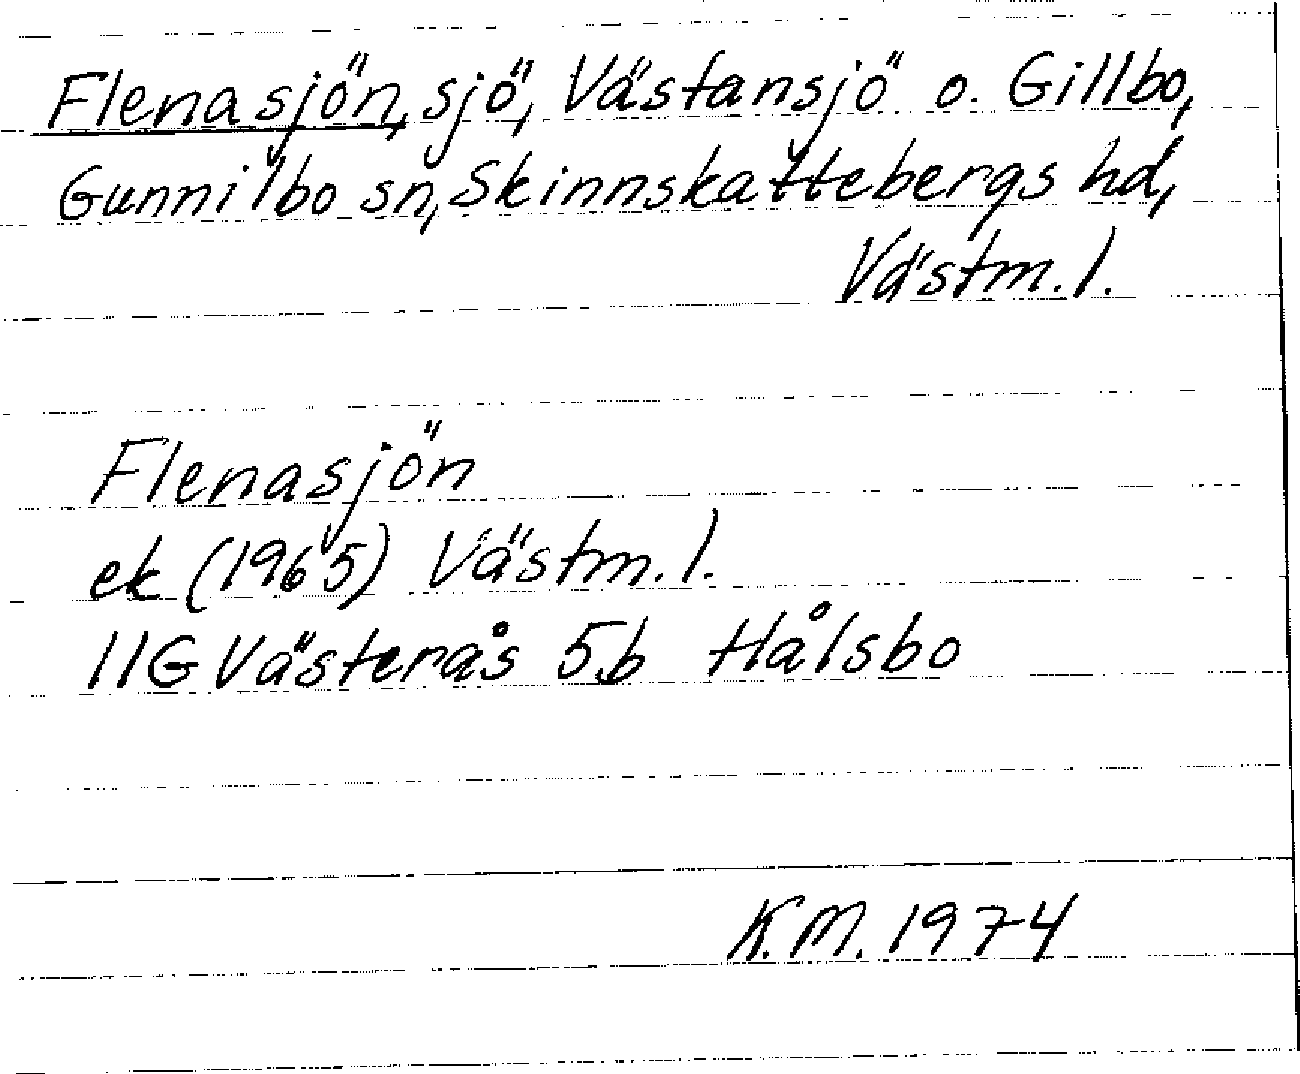 Flenasjön, sjö, Västansjö o. Gillbo,
Gunnilbo sn, Skinnskattebergs hd,
Västm. l.
Flenasjön
ek (1965) Västm. l.
11G Västerås 5b Hålsbo
K.M. 1974